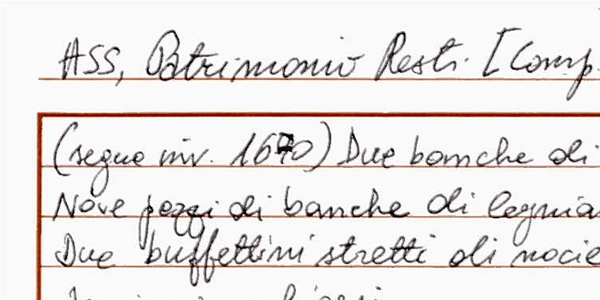 ASS, Patrimonio Resti. [Comp.
(segue inv. 1670) Due banche di
Nove pezzi di banche di legnia
Due buffettini stretti di nocie